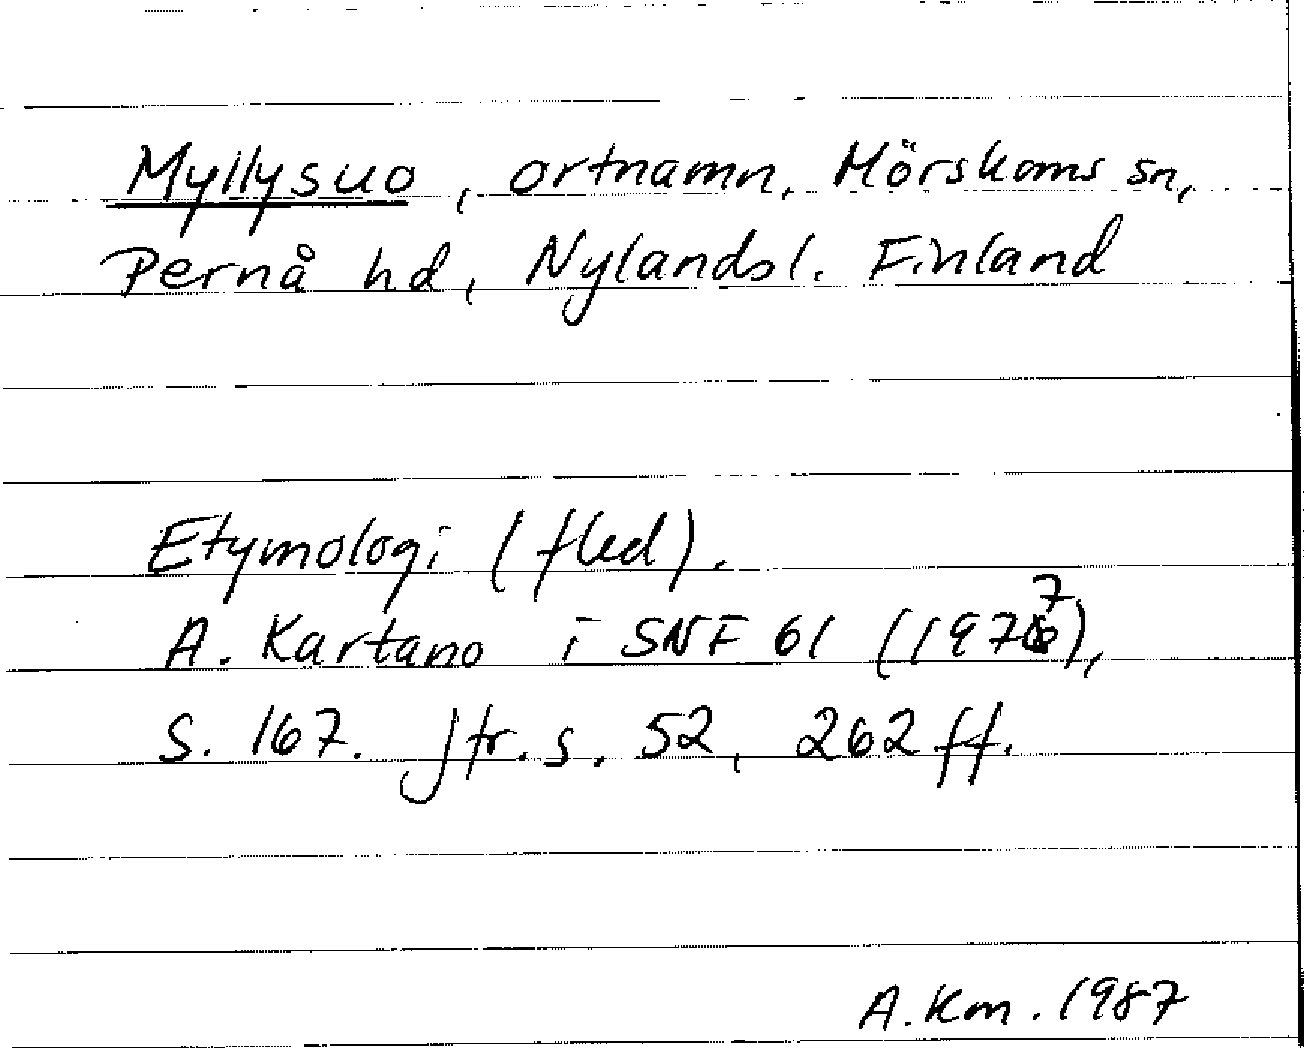 Myllysuo, ortnamn, Mörskoms sn,
Pernå hd, Nylandsl. Finland
Etymologi (fled).
A. Kartano i SNF 61 (1977),
s. 167. Jfr. s. 52, 262 ff.
A. Km. 1987